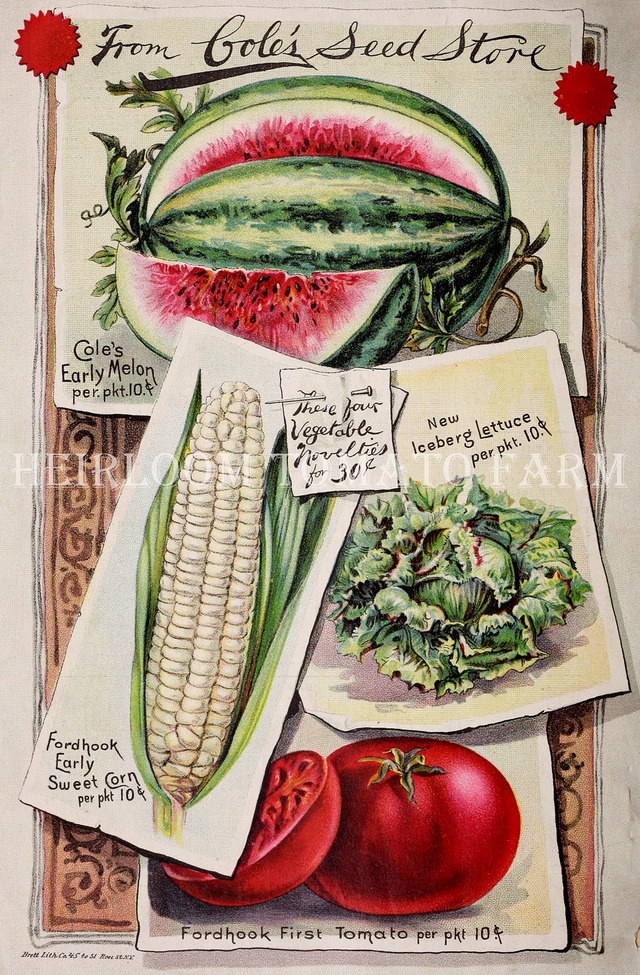 From Cole's Seed Store
Cole's
Early Melon
per. pkt. 10¢
These four
Vegetable
Novelties
for 30¢
New
Iceberg Lettuce
per pkt. 10¢
HEIRLOOM TOMATO FARM
Fordhook
Early
Sweet Corn
per pkt 10¢
Fordhook First Tomato per pkt 10¢
Brett Lith. Co. 45 to 51 Rose St. N.Y.